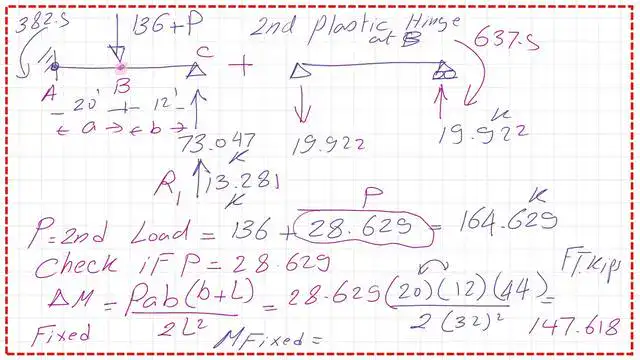 382.5 136+P 2nd Plastic Hinge
at B 637.5
C +
A B
20' 12'
a b
73.047 K 19.922 19.922 K
R1 13.281 K
P=2nd Load = 136 + 28.629 P = 164.629 K
Check if P = 28.629
ΔM Fixed = Pab(b+L) / 2L² = 28.629(20)(12)(44) / 2(32)² = 147.618 FT.Kips
MFixed =